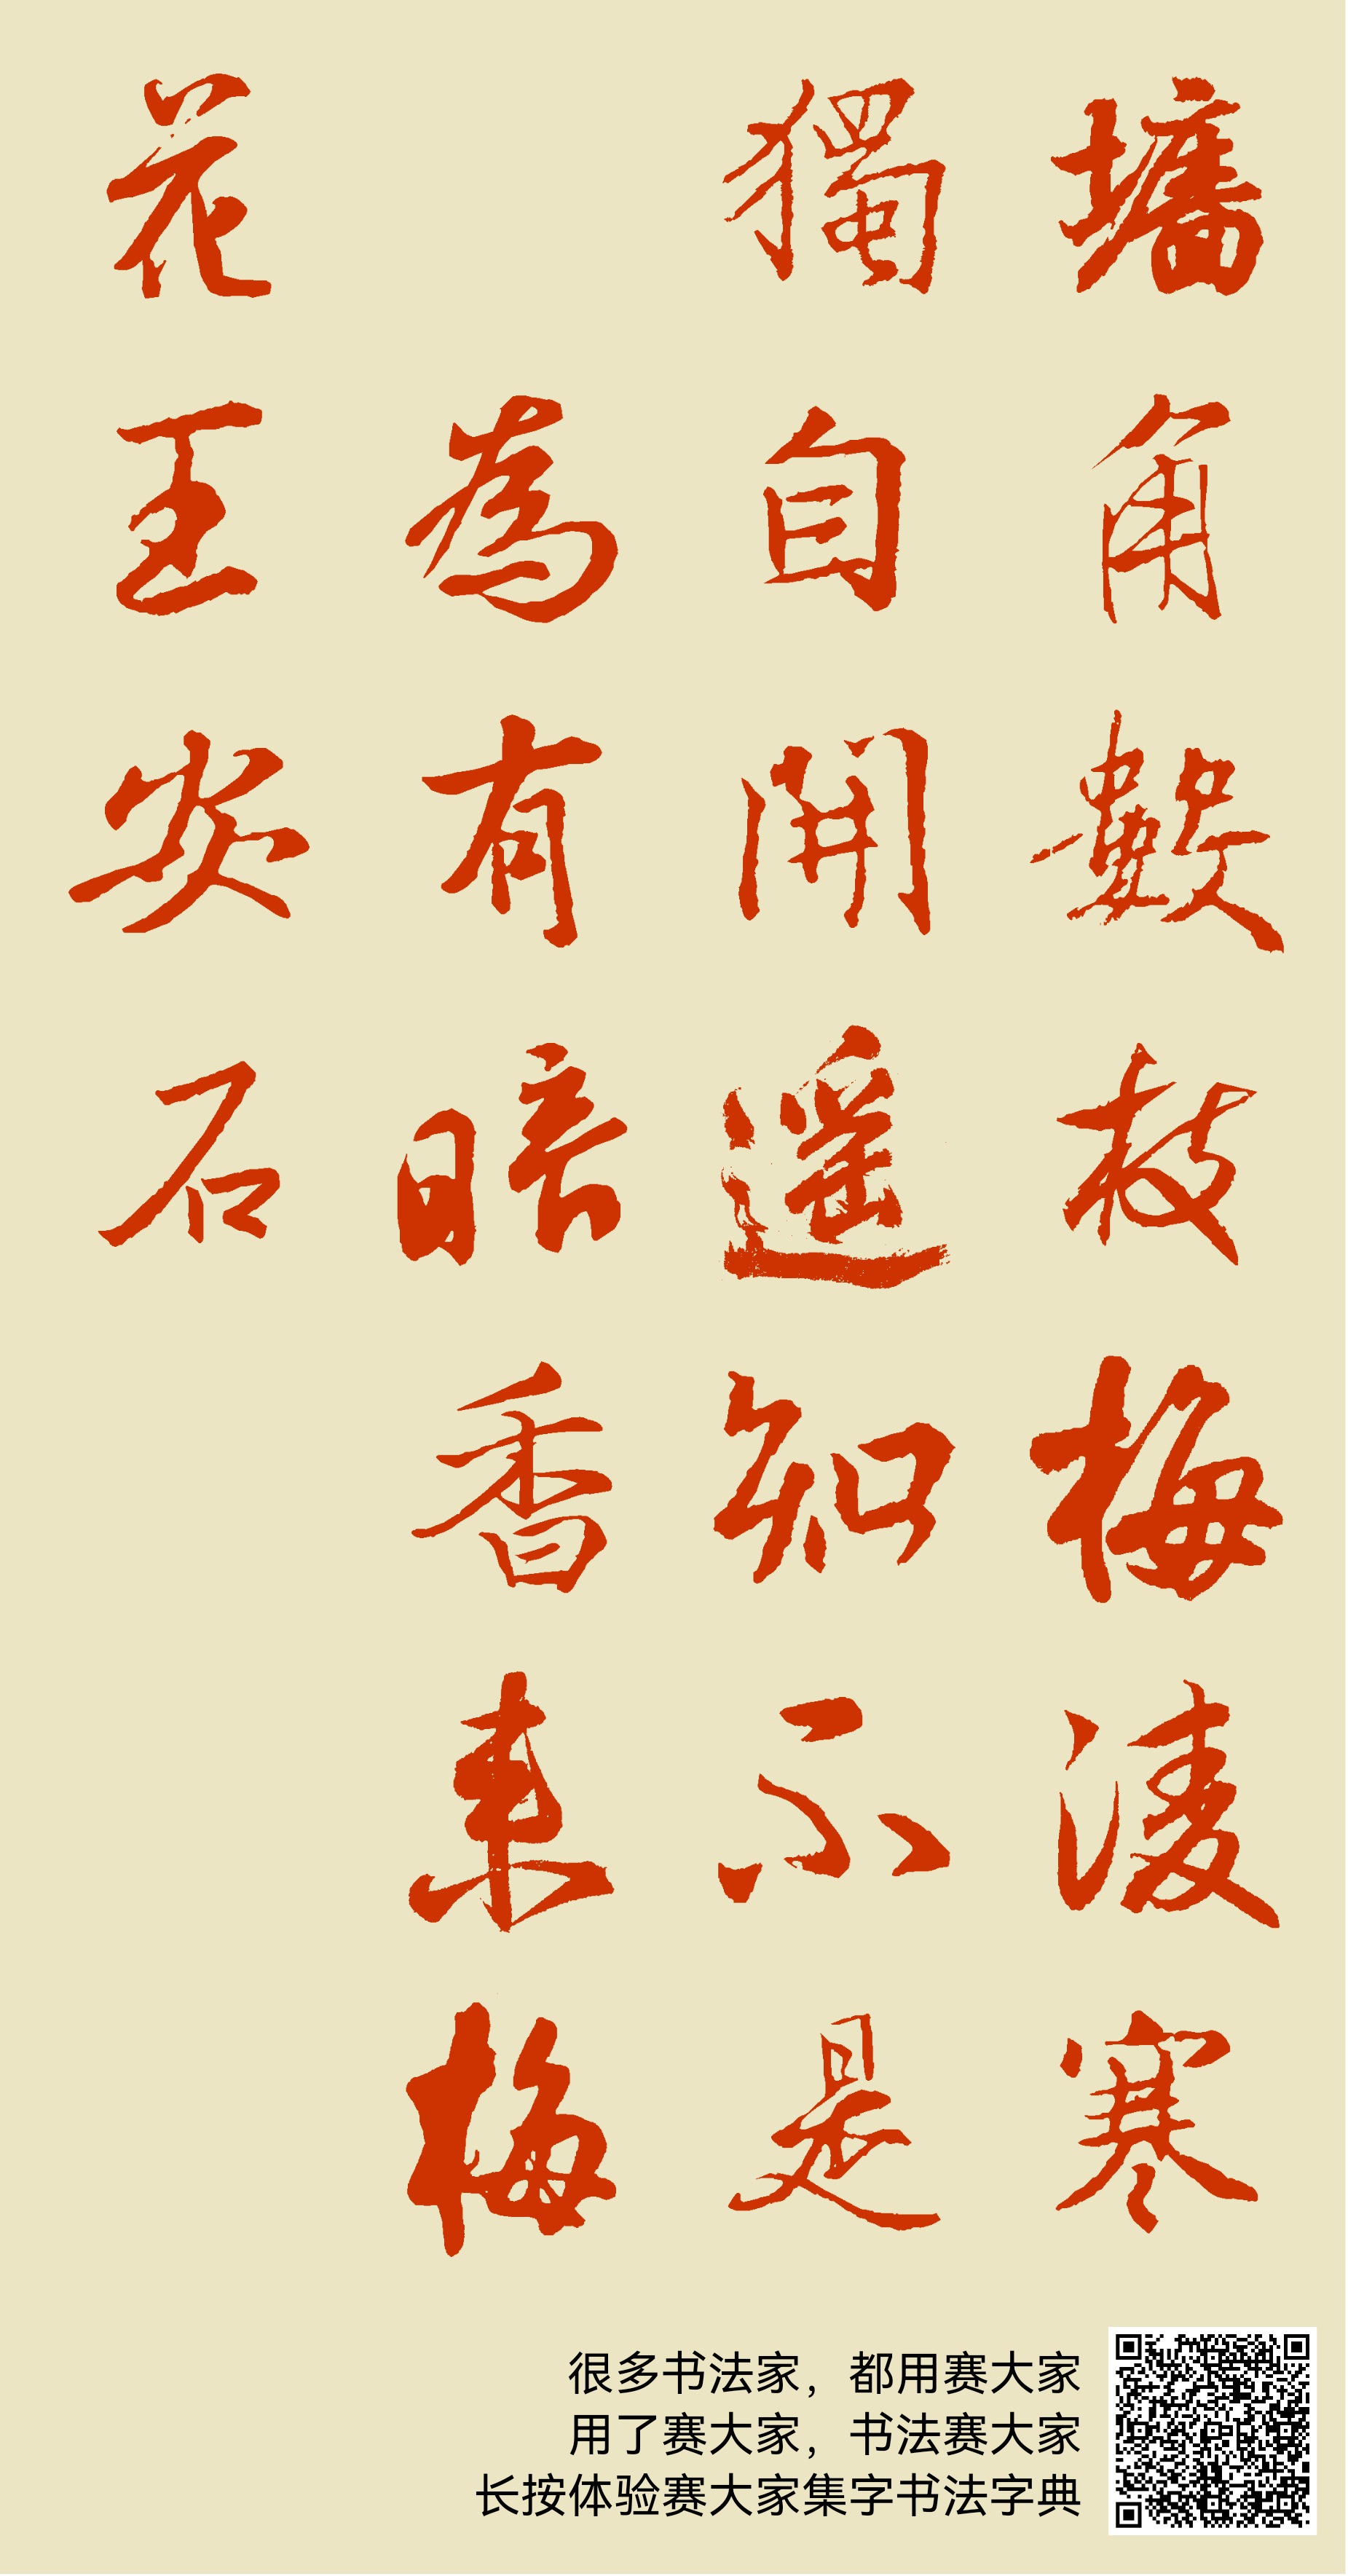 墻角數枝梅凌寒
獨自開遥知不是
為有暗香来梅
花王安石
很多书法家，都用赛大家
用了赛大家，书法赛大家
长按体验赛大家集字书法字典